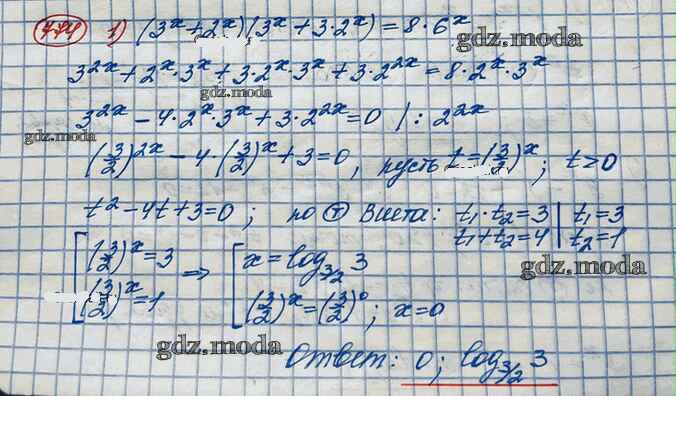 774 1) (3^x + 2^x)(3^x + 3·2^x) = 8·6^x
gdz.moda
3^{2x} + 2^x·3^x + 3·2^x·3^x + 3·2^{2x} = 8·2^x·3^x
gdz.moda
3^{2x} - 4·2^x·3^x + 3·2^{2x} = 0 | : 2^{2x}
gdz.moda
(3/2)^{2x} - 4·(3/2)^x + 3 = 0, пусть t = (3/2)^x; t > 0
t^2 - 4t + 3 = 0; по Т Виета: t_1·t_2 = 3 | t_1 = 3
t_1 + t_2 = 4 | t_2 = 1
[ (3/2)^x = 3 ⇒ [ x = log_{3/2} 3
gdz.moda
(3/2)^x = 1 (3/2)^x = (3/2)^0; x = 0
gdz.moda
Ответ: 0; log_{3/2} 3